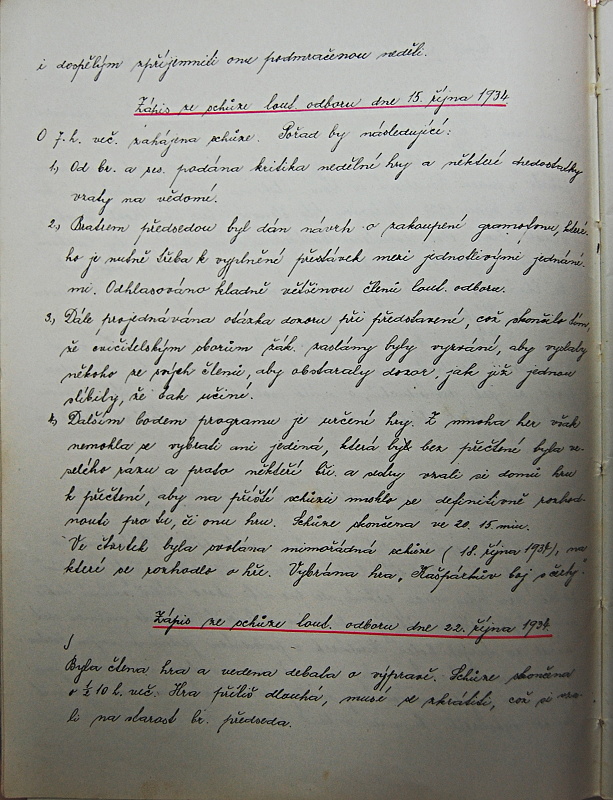 i dospělým zpříjemnili onu podmračenou neděli.
Zápis ze schůze lout. odboru dne 15. října 1934.
O 7. h. več. zahájena schůze. Pořad by následující:
1.) Od br. a ses. podána kritika nedělní hry a některé nedostatky
vzaty na vědomí.
2.) Bratrem předsedou byl dán návrh o zakoupení gramofonu, které-
ho je nutně třeba k vyplnění přestávek mezi jednotlivými jednání-
mi. Odhlasováno kladně většinou členů lout. odboru.
3.) Dále projednávána otázka dozoru při představení, což skončilo tím,
že cvičitelským sborům žák. zaslány byly vyzvání, aby vyslaly
někoho ze svých členů, aby obstaraly dozor, jak již jednou
slíbily, že tak učiní.
4.) Dalším bodem programu je určení hry. Z mnoha her však
nemohla se vybrati ani jediná, která by bez přečtení byla ve-
selého rázu a proto někteří bři. a sestry vzali si domů hru
k přečtení, aby na příští schůzi mohlo se definitivně rozhod-
nouti pro tu, či onu hru. Schůze skončena ve 20. 15 min.
Ve čtvrtek byla svolána mimořádná schůze (18. října 1934), na
které se rozhodlo o hře. Vybrána hra „Kašpárkův boj s čerty".
Zápis ze schůze lout. odboru dne 22. října 1934.
Byla čtena hra a vedena debata o výpravě. Schůze skončena
o ½ 10 h. več. Hra příliš dlouhá, musí se zkrátiti, což si vza-
li na starost br. předseda.